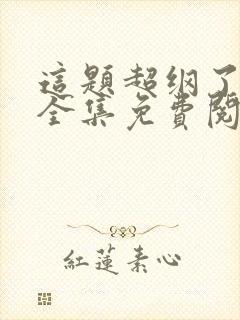 這題超纲了
全集免費閱
紅蓮素心